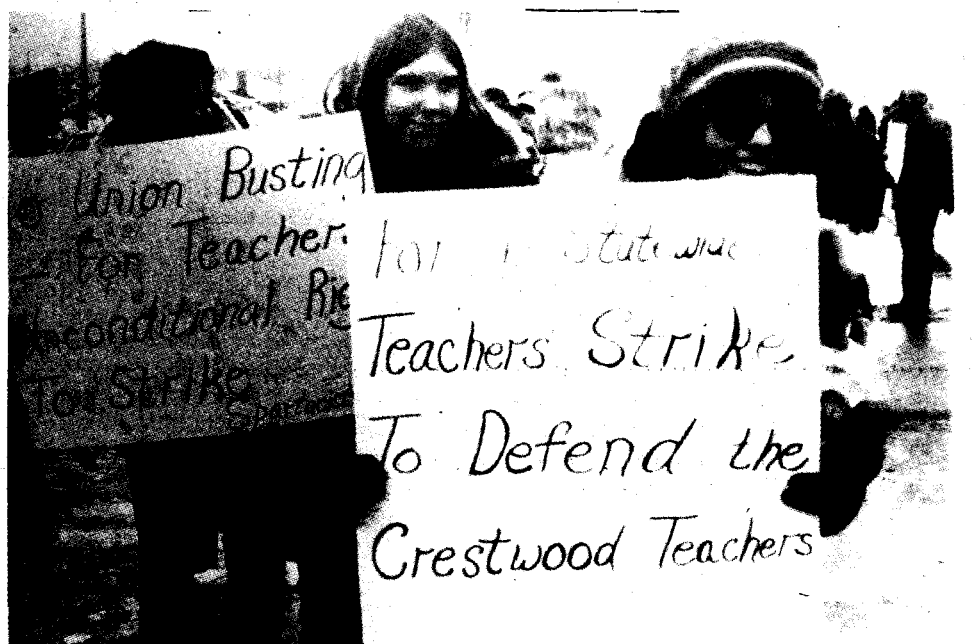 Union Busting
For Teachers
Unconditional Rig
To Strike
Spartacus
For a Statewide
Teachers Strike
To Defend the
Crestwood Teachers